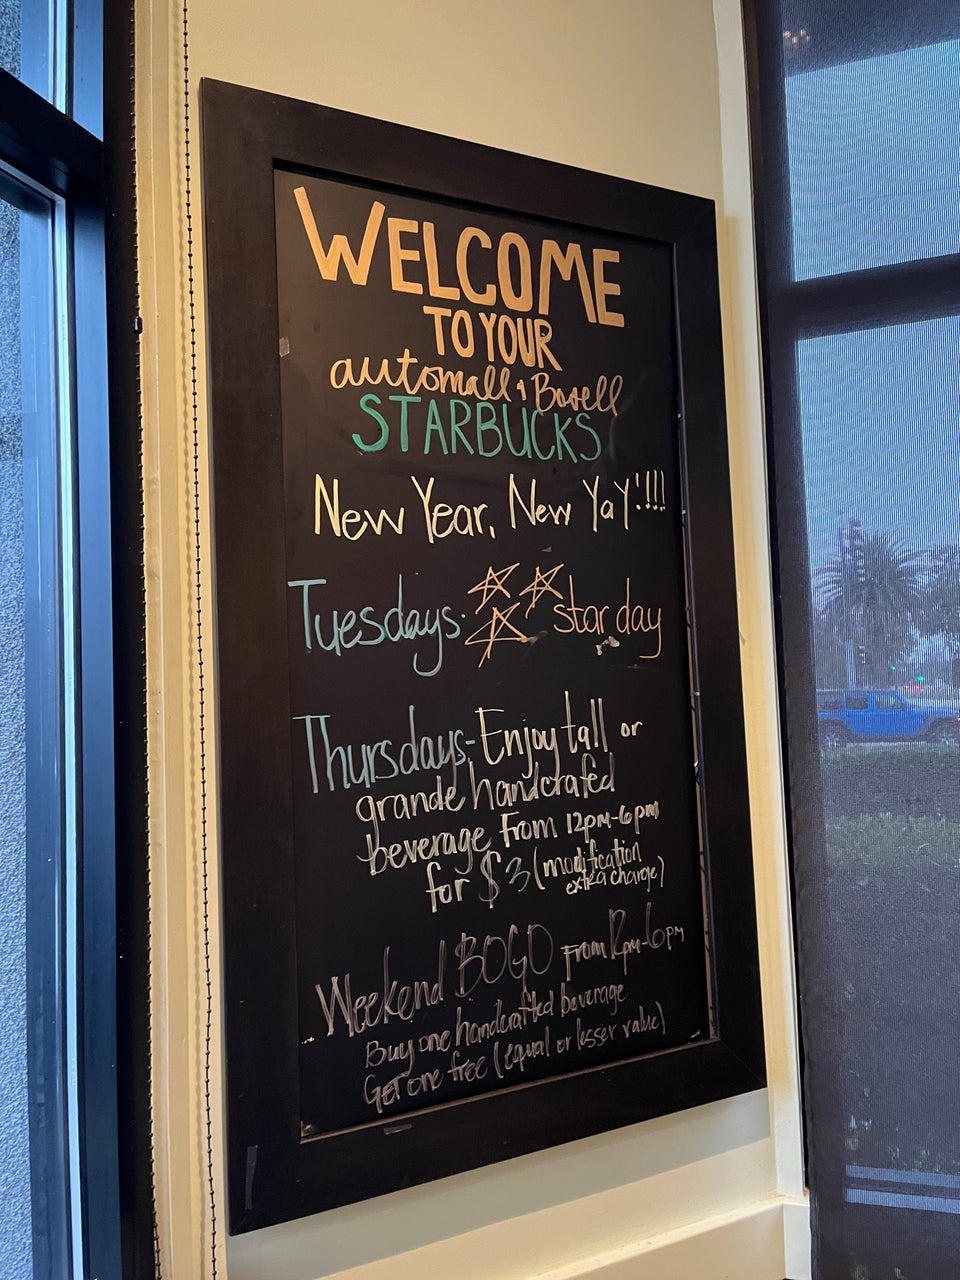 WELCOME
TO YOUR
automall & Bosell
STARBUCKS
New Year, New Yay!!!!
Tuesdays- star day
Thursdays- Enjoy tall or
grande handcrafed
beverage From 12pm-6pm
for $3 (modification
extra charge)
Weekend BOGO From 12pm-6pm
Buy one handcrafted beverage
Get one free (equal or lesser value)